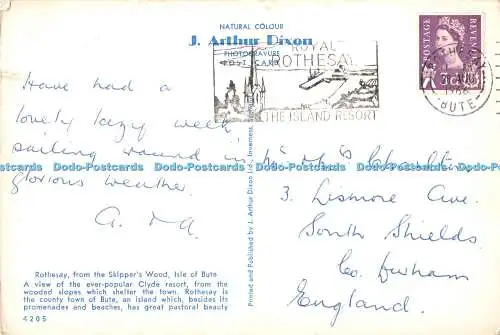 NATURAL COLOUR
J. Arthur Dixon
PHOTOGRAVURE
POST CARD
ROYAL
ROTHESAY
THE ISLAND RESORT
POSTAGE
REVENUE
3D
1966
BUTE
Have had a
lovely lazy week
sailing around in
glorious weather.
Dodo-Postcards Dodo-Postcards Dodo-Postcards Dodo-Postcards Dodo-Postcards
3, Lismore Ave.
South Shields
Co. Durham
England.
Printed and Published by J. Arthur Dixon Ltd., Inverness,
Rothesay, from the Skipper's Wood, Isle of Bute
A view of the ever-popular Clyde resort, from the
wooded slopes which shelter the town. Rothesay is
the county town of Bute, an island which, besides its
promenades and beaches, has great pastoral beauty
4205